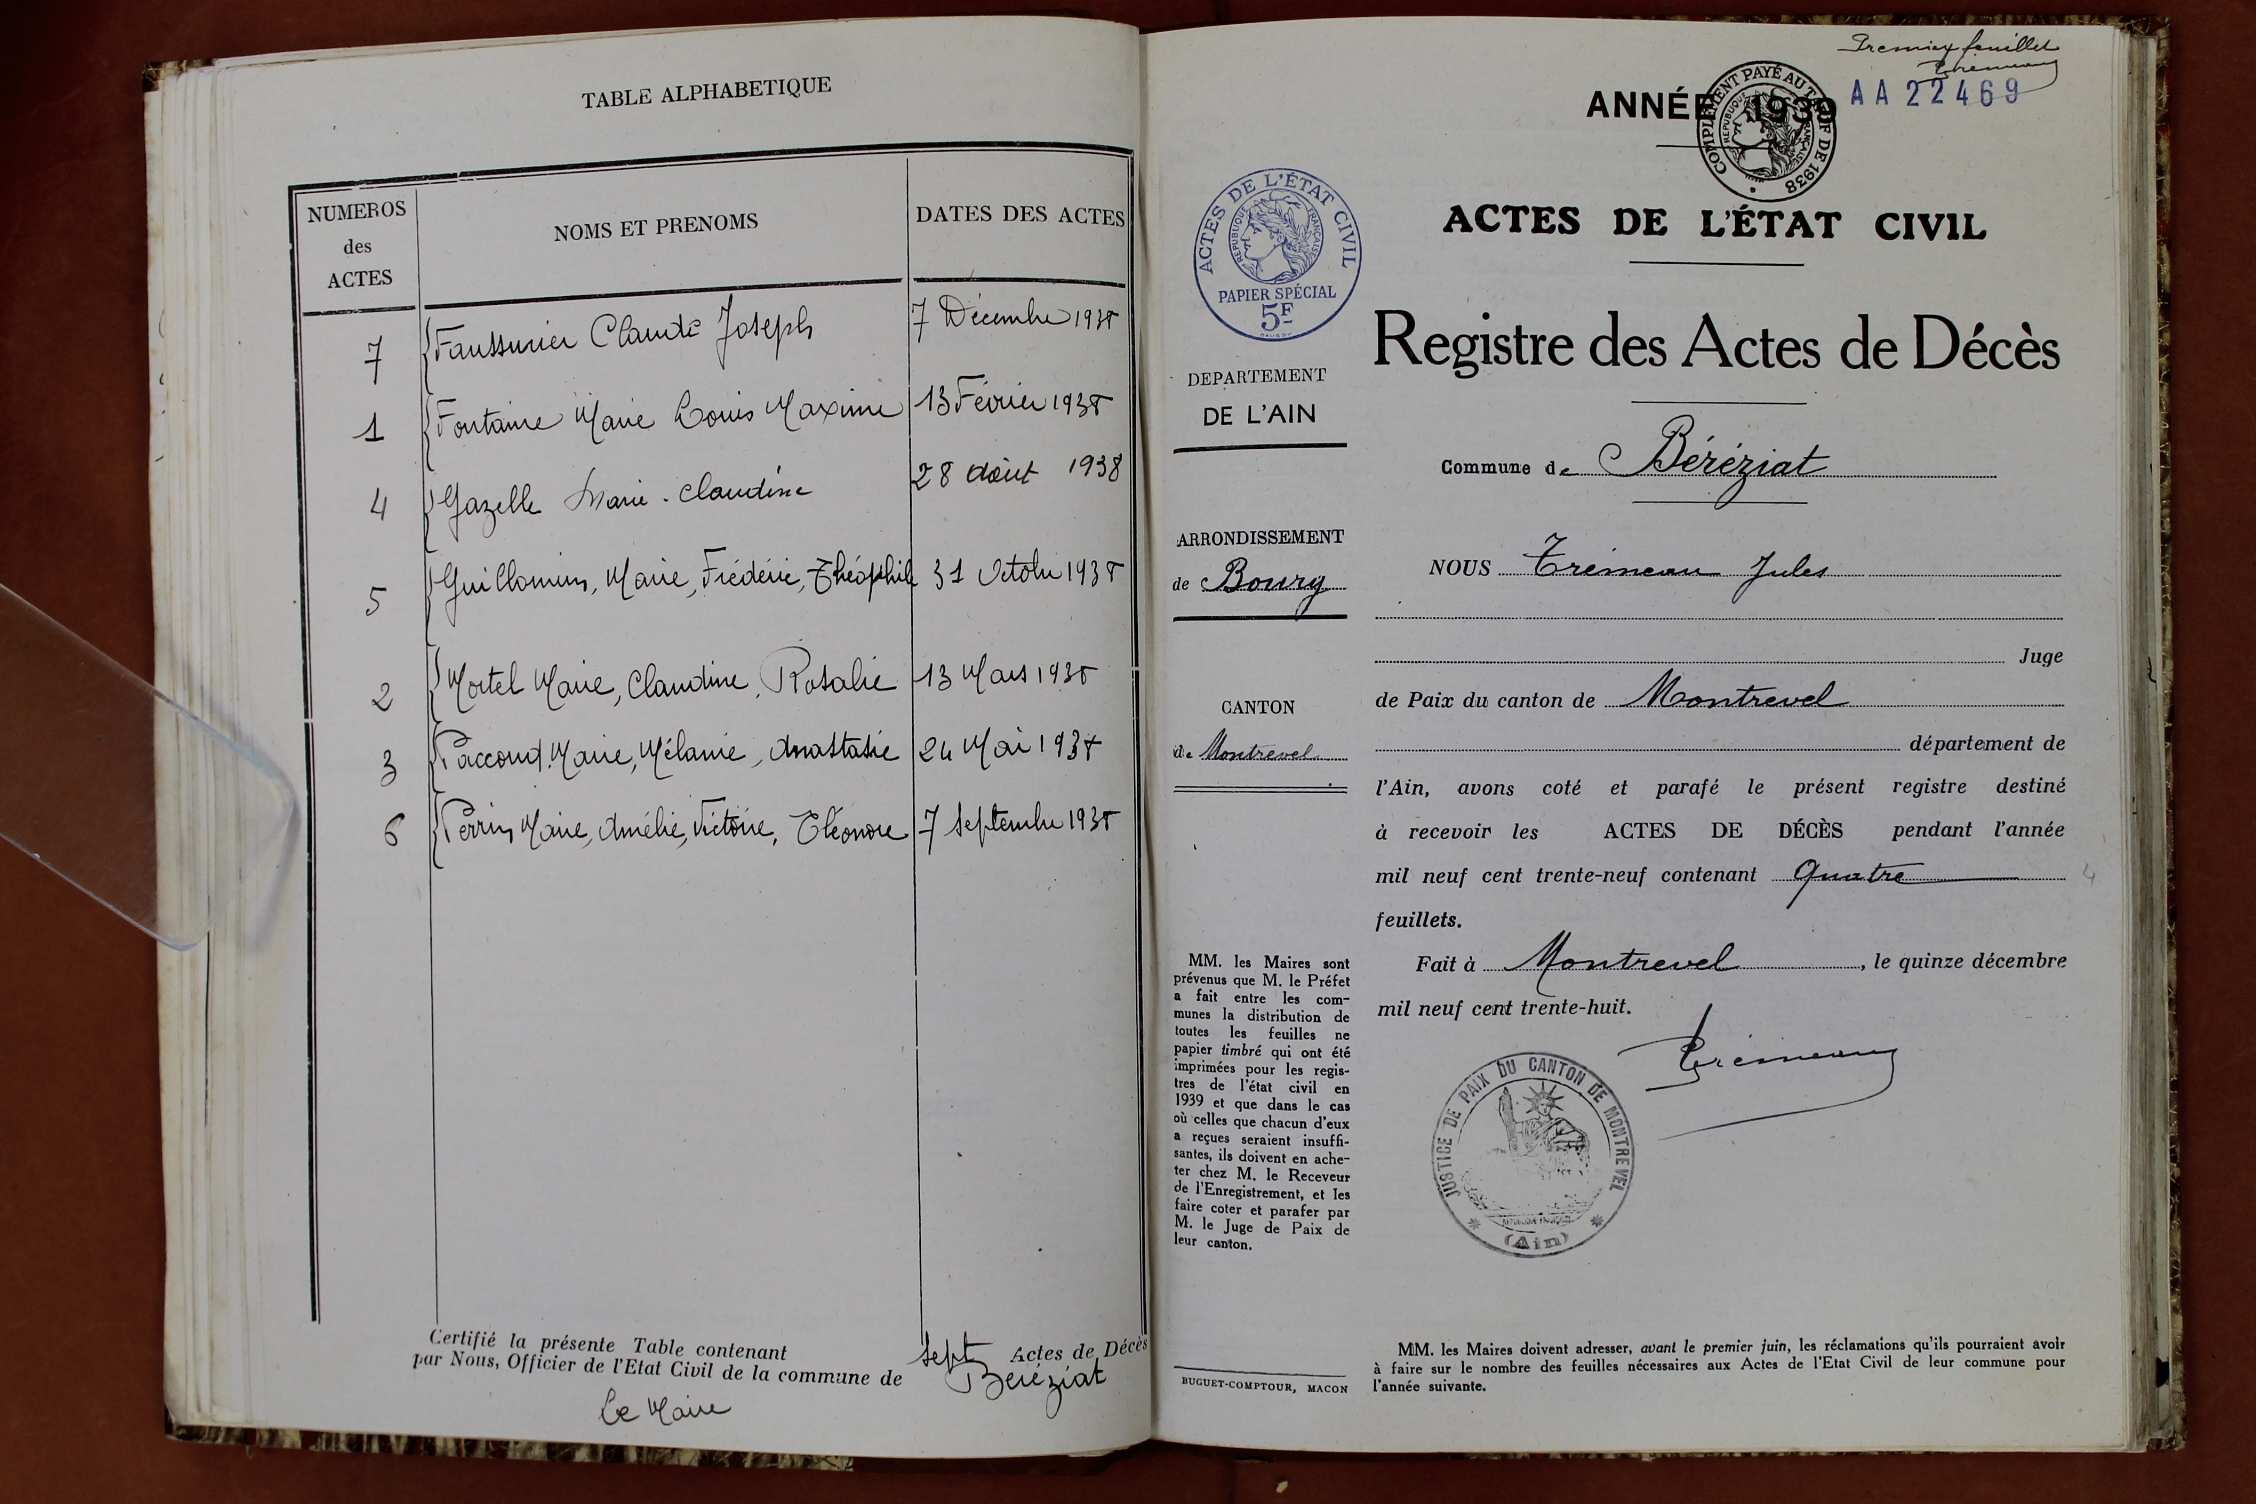 TABLE ALPHABETIQUE
NUMEROS
des
ACTES
NOMS ET PRENOMS
DATES DES ACTES
7 Faussurier Claude Joseph 7 Décembre 1938
1 Fontaine Marie Louis Maxime 13 Février 1938
4 Gazelle Marie-Claudine 28 août 1938
5 Guillomin, Marie, Frédéric, Théophile 31 Octobre 1938
2 Mortel Marie, Claudine, Rosalie 13 Mars 1938
3 Paccoud, Marie, Mélanie, Anastasie 24 Mai 1938
6 Perrin, Marie, Amélie, Victoire, Eléonore 7 Septembre 1938
Certifié la présente Table contenant sept Actes de Décès
par Nous, Officier de l'Etat Civil de la commune de Béréziat
Le Maire
Premier feuillet
Trémeau
AA 22469
ANNÉE 1939
COMPLÉMENT PAYÉ AU TARIF DE 1938
RÉPUBLIQUE FRANÇAISE
ACTES DE L'ÉTAT CIVIL
RÉPUBLIQUE FRANÇAISE
PAPIER SPÉCIAL
5F
ACTES DE L'ÉTAT CIVIL
Registre des Actes de Décès
DEPARTEMENT
DE L'AIN
ARRONDISSEMENT
de Bourg
CANTON
de Montrevel
Commune de Béréziat
NOUS Trémeau Jules
Juge
de Paix du canton de Montrevel
département de
l'Ain, avons coté et parafé le présent registre destiné
à recevoir les ACTES DE DÉCÈS pendant l'année
mil neuf cent trente-neuf contenant Quatre 4
feuillets.
Fait à Montrevel, le quinze décembre
mil neuf cent trente-huit.
Trémeau
JUSTICE DE PAIX DU CANTON DE MONTREVEL
(Ain)
MM. les Maires sont
prévenus que M. le Préfet
a fait entre les com-
munes la distribution de
toutes les feuilles ne
papier timbré qui ont été
imprimées pour les regis-
tres de l'état civil en
1939 et que dans le cas
où celles que chacun d'eux
a reçues seraient insuffi-
santes, ils doivent en ache-
ter chez M. le Receveur
de l'Enregistrement, et les
faire coter et parafer par
M. le Juge de Paix de
leur canton.
BUGUET-COMPTOUR, MACON
MM. les Maires doivent adresser, avant le premier juin, les réclamations qu'ils pourraient avoir
à faire sur le nombre des feuilles nécessaires aux Actes de l'Etat Civil de leur commune pour
l'année suivante.